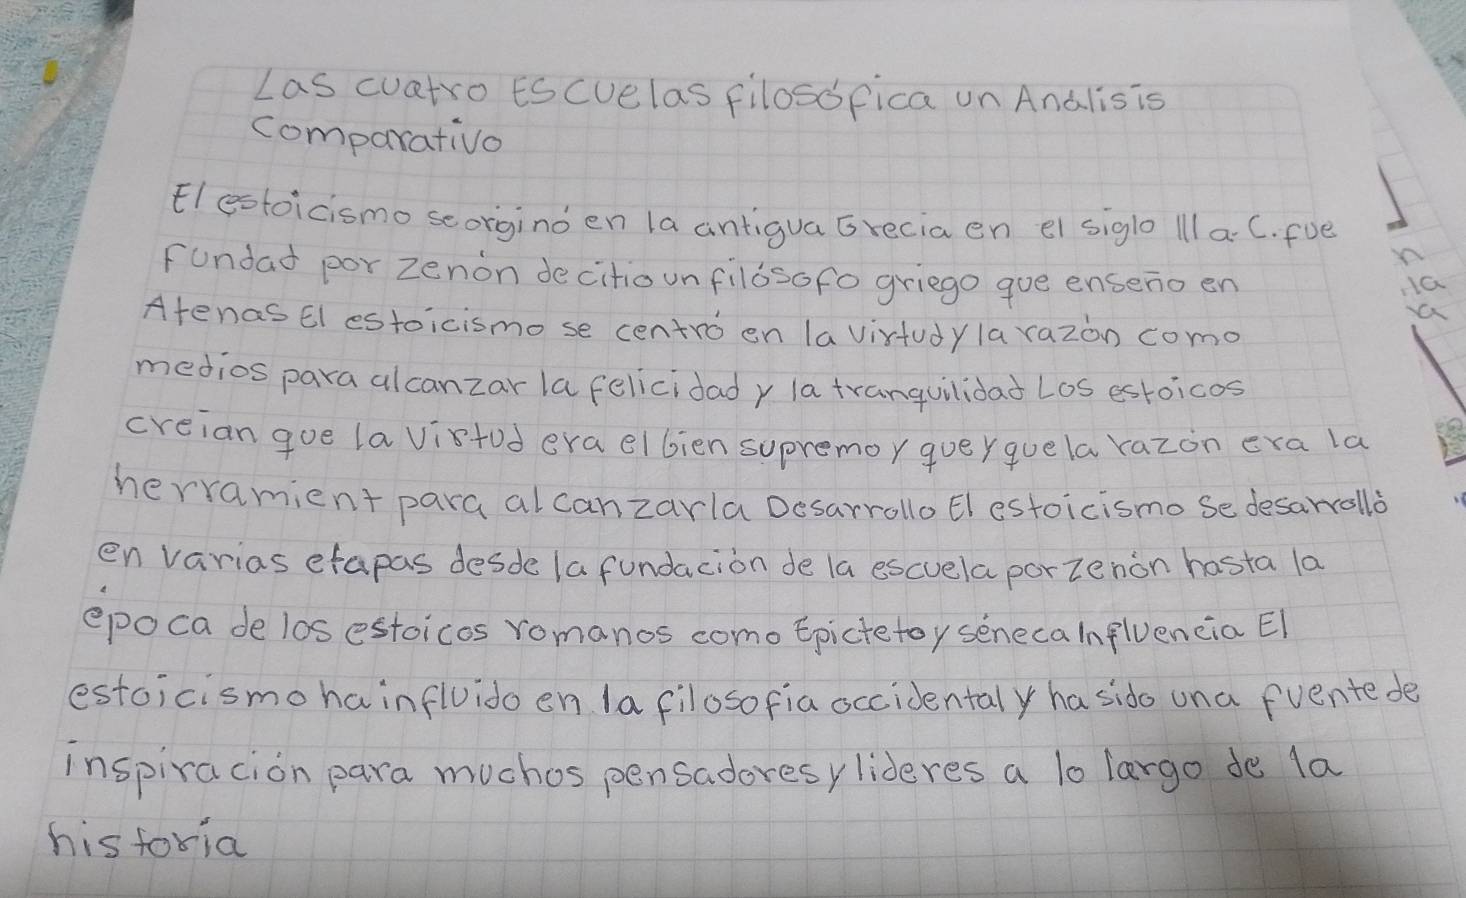 Las cuatro Escuelas filosófica un Análisis
comparativo
El estoicismo se originó en la antigua Grecia en el siglo III a.C. fue
fundad por zenón de citio un filósofo griego que enseño en
Atenas El estoicismo se centró en la virtud y la razón como
medios para alcanzar la felicidad y la tranquilidad Los estoicos
creian que la virtud era el bien supremo y que y que la razón era la
herramient para alcanzarla Desarrollo El estoicismo se desarrolló
en varias etapas desde la fundación de la escuela por zenón hasta la
época de los estoicos romanos como Epicteto y séneca Influencia El
estoicismo ha influido en la filosofia occidental y ha sido una fuente de
inspiración para muchos pensadores y lideres a lo largo de la
historia
n
la
a